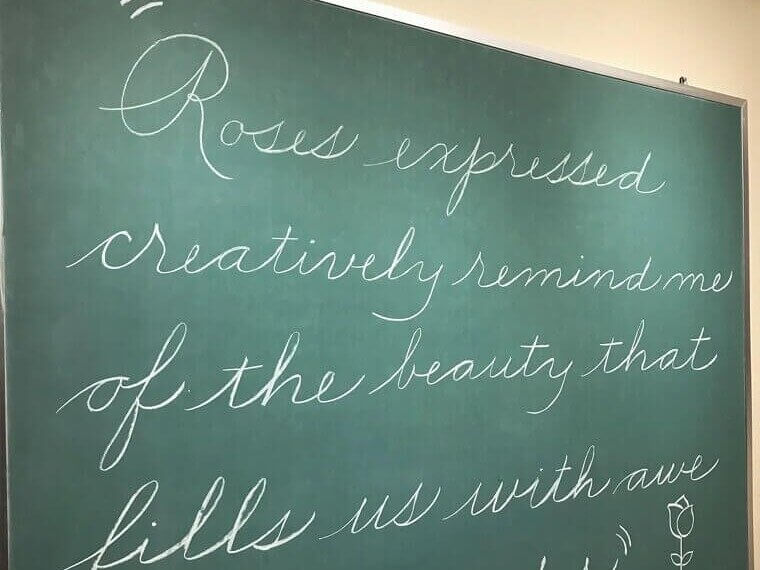 "Roses expressed
creatively remind me
of the beauty that
fills us with awe
"